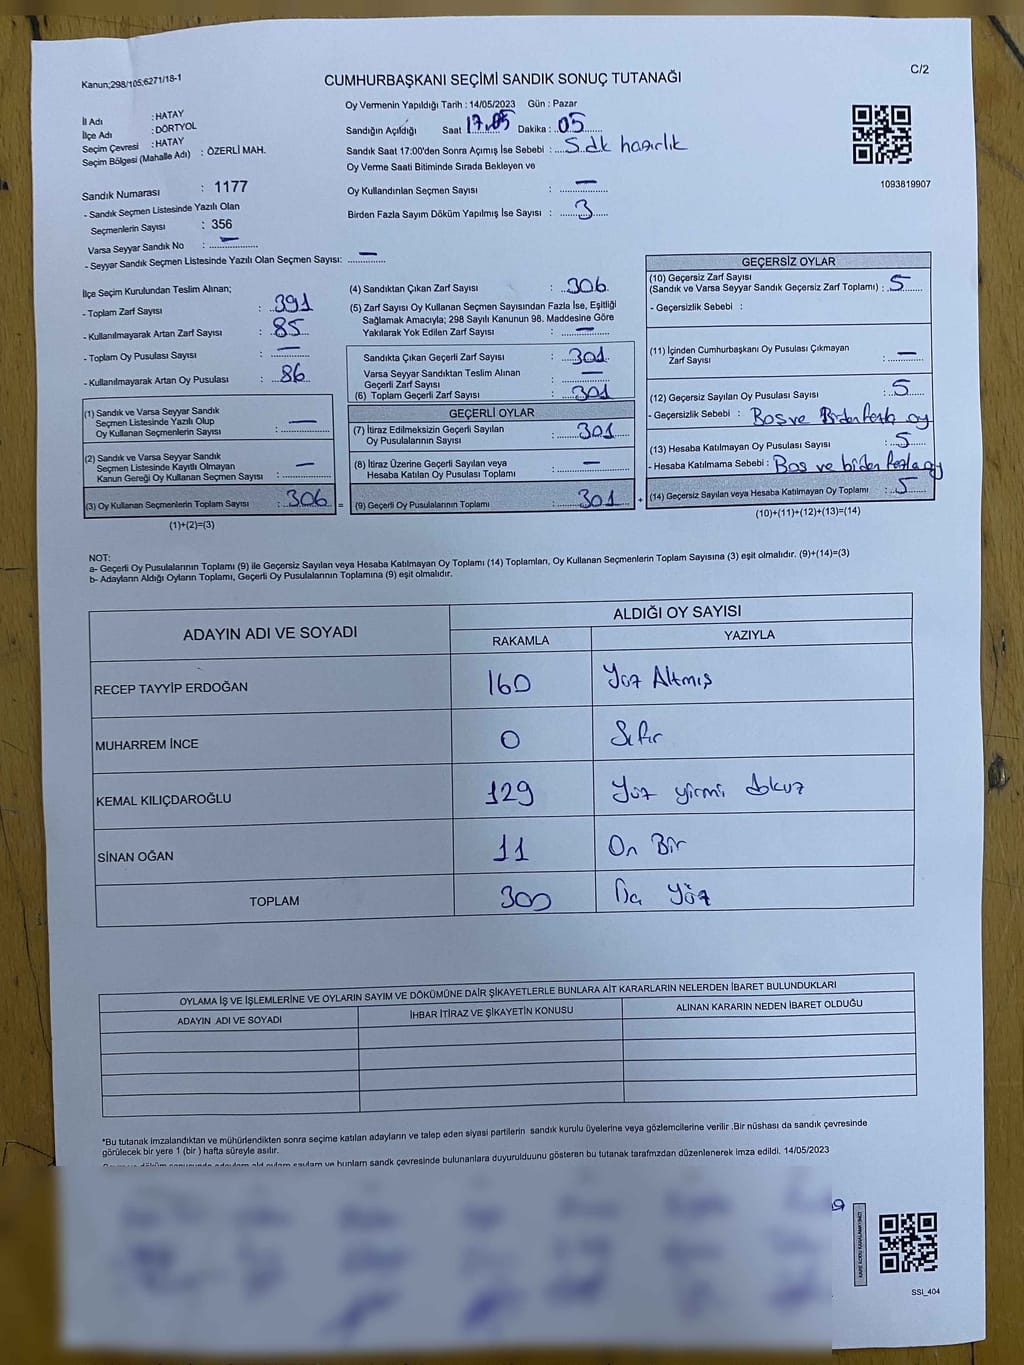 Kanun;298/105;6271/18-1
CUMHURBAŞKANI SEÇİMİ SANDIK SONUÇ TUTANAĞI
C/2
İl Adı : HATAY
İlçe Adı : DÖRTYOL
Seçim Çevresi : HATAY
Seçim Bölgesi (Mahalle Adı) : ÖZERLİ MAH.
Oy Vermenin Yapıldığı Tarih : 14/05/2023 Gün : Pazar
Sandığın Açıldığı Saat 17.05 Dakika : 05
Sandık Saat 17:00'den Sonra Açımış İse Sebebi : Sdk hazırlık
Oy Verme Saati Bitiminde Sırada Bekleyen ve
Oy Kullandırılan Seçmen Sayısı : —
Birden Fazla Sayım Döküm Yapılmış İse Sayısı : 3
1093819907
Sandık Numarası : 1177
- Sandık Seçmen Listesinde Yazılı Olan
Seçmenlerin Sayısı : 356
Varsa Seyyar Sandık No : —
- Seyyar Sandık Seçmen Listesinde Yazılı Olan Seçmen Sayısı: —
İlçe Seçim Kurulundan Teslim Alınan;
- Toplam Zarf Sayısı : 391
- Kullanılmayarak Artan Zarf Sayısı : 85
- Toplam Oy Pusulası Sayısı : —
- Kullanılmayarak Artan Oy Pusulası : 86
(1) Sandık ve Varsa Seyyar Sandık
Seçmen Listesinde Yazılı Olup
Oy Kullanan Seçmenlerin Sayısı : —
(2) Sandık ve Varsa Seyyar Sandık
Seçmen Listesinde Kayıtlı Olmayan
Kanun Gereği Oy Kullanan Seçmen Sayısı : —
(3) Oy Kullanan Seçmenlerin Toplam Sayısı : 306 =
(1)+(2)=(3)
(4) Sandıktan Çıkan Zarf Sayısı : 306
(5) Zarf Sayısı Oy Kullanan Seçmen Sayısından Fazla İse, Eşitliği
Sağlamak Amacıyla; 298 Sayılı Kanunun 98. Maddesine Göre
Yakılarak Yok Edilen Zarf Sayısı : —
Sandıkta Çıkan Geçerli Zarf Sayısı : 301
Varsa Seyyar Sandıktan Teslim Alınan
Geçerli Zarf Sayısı : —
(6) Toplam Geçerli Zarf Sayısı : 301
GEÇERLİ OYLAR
(7) İtiraz Edilmeksizin Geçerli Sayılan
Oy Pusulalarının Sayısı : 301
(8) İtiraz Üzerine Geçerli Sayılan veya
Hesaba Katılan Oy Pusulası Toplamı : —
(9) Geçerli Oy Pusulalarının Toplamı : 301 +
GEÇERSİZ OYLAR
(10) Geçersiz Zarf Sayısı
(Sandık ve Varsa Seyyar Sandık Geçersiz Zarf Toplamı) : 5
- Geçersizlik Sebebi :
(11) İçinden Cumhurbaşkanı Oy Pusulası Çıkmayan
Zarf Sayısı : —
(12) Geçersiz Sayılan Oy Pusulası Sayısı : 5
- Geçersizlik Sebebi : Boş ve Birden fazla oy
(13) Hesaba Katılmayan Oy Pusulası Sayısı : 5
- Hesaba Katılmama Sebebi : Boş ve birden fazla oy
(14) Geçersiz Sayılan veya Hesaba Katılmayan Oy Toplamı : 5
(10)+(11)+(12)+(13)=(14)
NOT:
a- Geçerli Oy Pusulalarının Toplamı (9) ile Geçersiz Sayılan veya Hesaba Katılmayan Oy Toplamı (14) Toplamları, Oy Kullanan Seçmenlerin Toplam Sayısına (3) eşit olmalıdır. (9)+(14)=(3)
b- Adayların Aldığı Oyların Toplamı, Geçerli Oy Pusulalarının Toplamına (9) eşit olmalıdır.
ADAYIN ADI VE SOYADI
ALDIĞI OY SAYISI
RAKAMLA YAZIYLA
RECEP TAYYİP ERDOĞAN 160 Yüz Altmış
MUHARREM İNCE 0 Sıfır
KEMAL KILIÇDAROĞLU 129 Yüz yirmi dokuz
SİNAN OĞAN 11 On Bir
TOPLAM 300 Üç Yüz
OYLAMA İŞ VE İŞLEMLERİNE VE OYLARIN SAYIM VE DÖKÜMÜNE DAİR ŞİKAYETLERLE BUNLARA AİT KARARLARIN NELERDEN İBARET BULUNDUKLARI
ADAYIN ADI VE SOYADI İHBAR İTİRAZ VE ŞİKAYETİN KONUSU ALINAN KARARIN NEDEN İBARET OLDUĞU
*Bu tutanak imzalandıktan ve mühürlendikten sonra seçime katılan adayların ve talep eden siyasi partilerin sandık kurulu üyelerine veya gözlemcilerine verilir .Bir nüshası da sandık çevresinde
görülecek bir yere 1 (bir ) hafta süreyle asılır.
sandık çevresinde bulunanlara duyurulduunu gösteren bu tutanak tarafmzdan düzenlenerek imza edildi. 14/05/2023
SSI_404